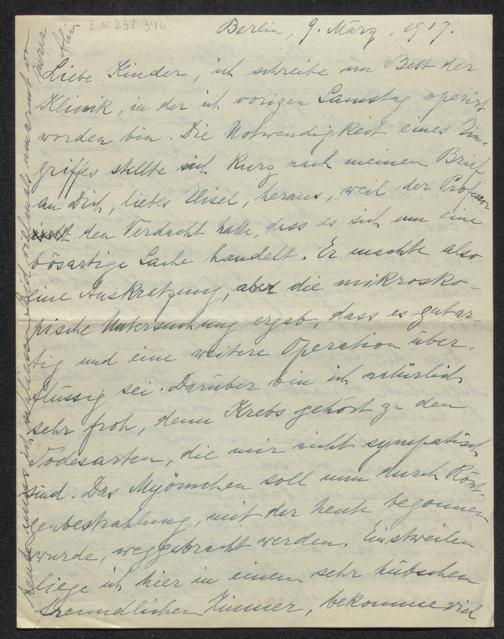 I.N. 232.346
Berlin, 9. März, 1917.
Liebe Kinder, ich schreibe im Bett der
Klinik, in der ich vorigen Samstag operirt
worden bin. Die Notwendigkeit eines Ein-
griffes stellte sich kurz nach meinem Brief
an Dich, liebes Elisel, heraus, weil der Professor
den Verdacht hatte, dass es sich um eine
bösartige Sache handelt. Er machte also
eine Auskratzung, aber die mikrosko-
pische Untersuchung ergab, dass es gutar-
tig und eine weitere Operation über-
flüssig sei. Darüber bin ich natürlich
sehr froh, denn Krebs gehört zu den
Todesarten, die mir nicht sympatisch
sind. Das Myömchen soll nun durch Rönt-
genbestrahlung, mit der heute begonnen
wurde, weggebracht werden. Einstweilen
liege ich hier in einem sehr hübschen
freundlichen Zimmer, bekomme viel